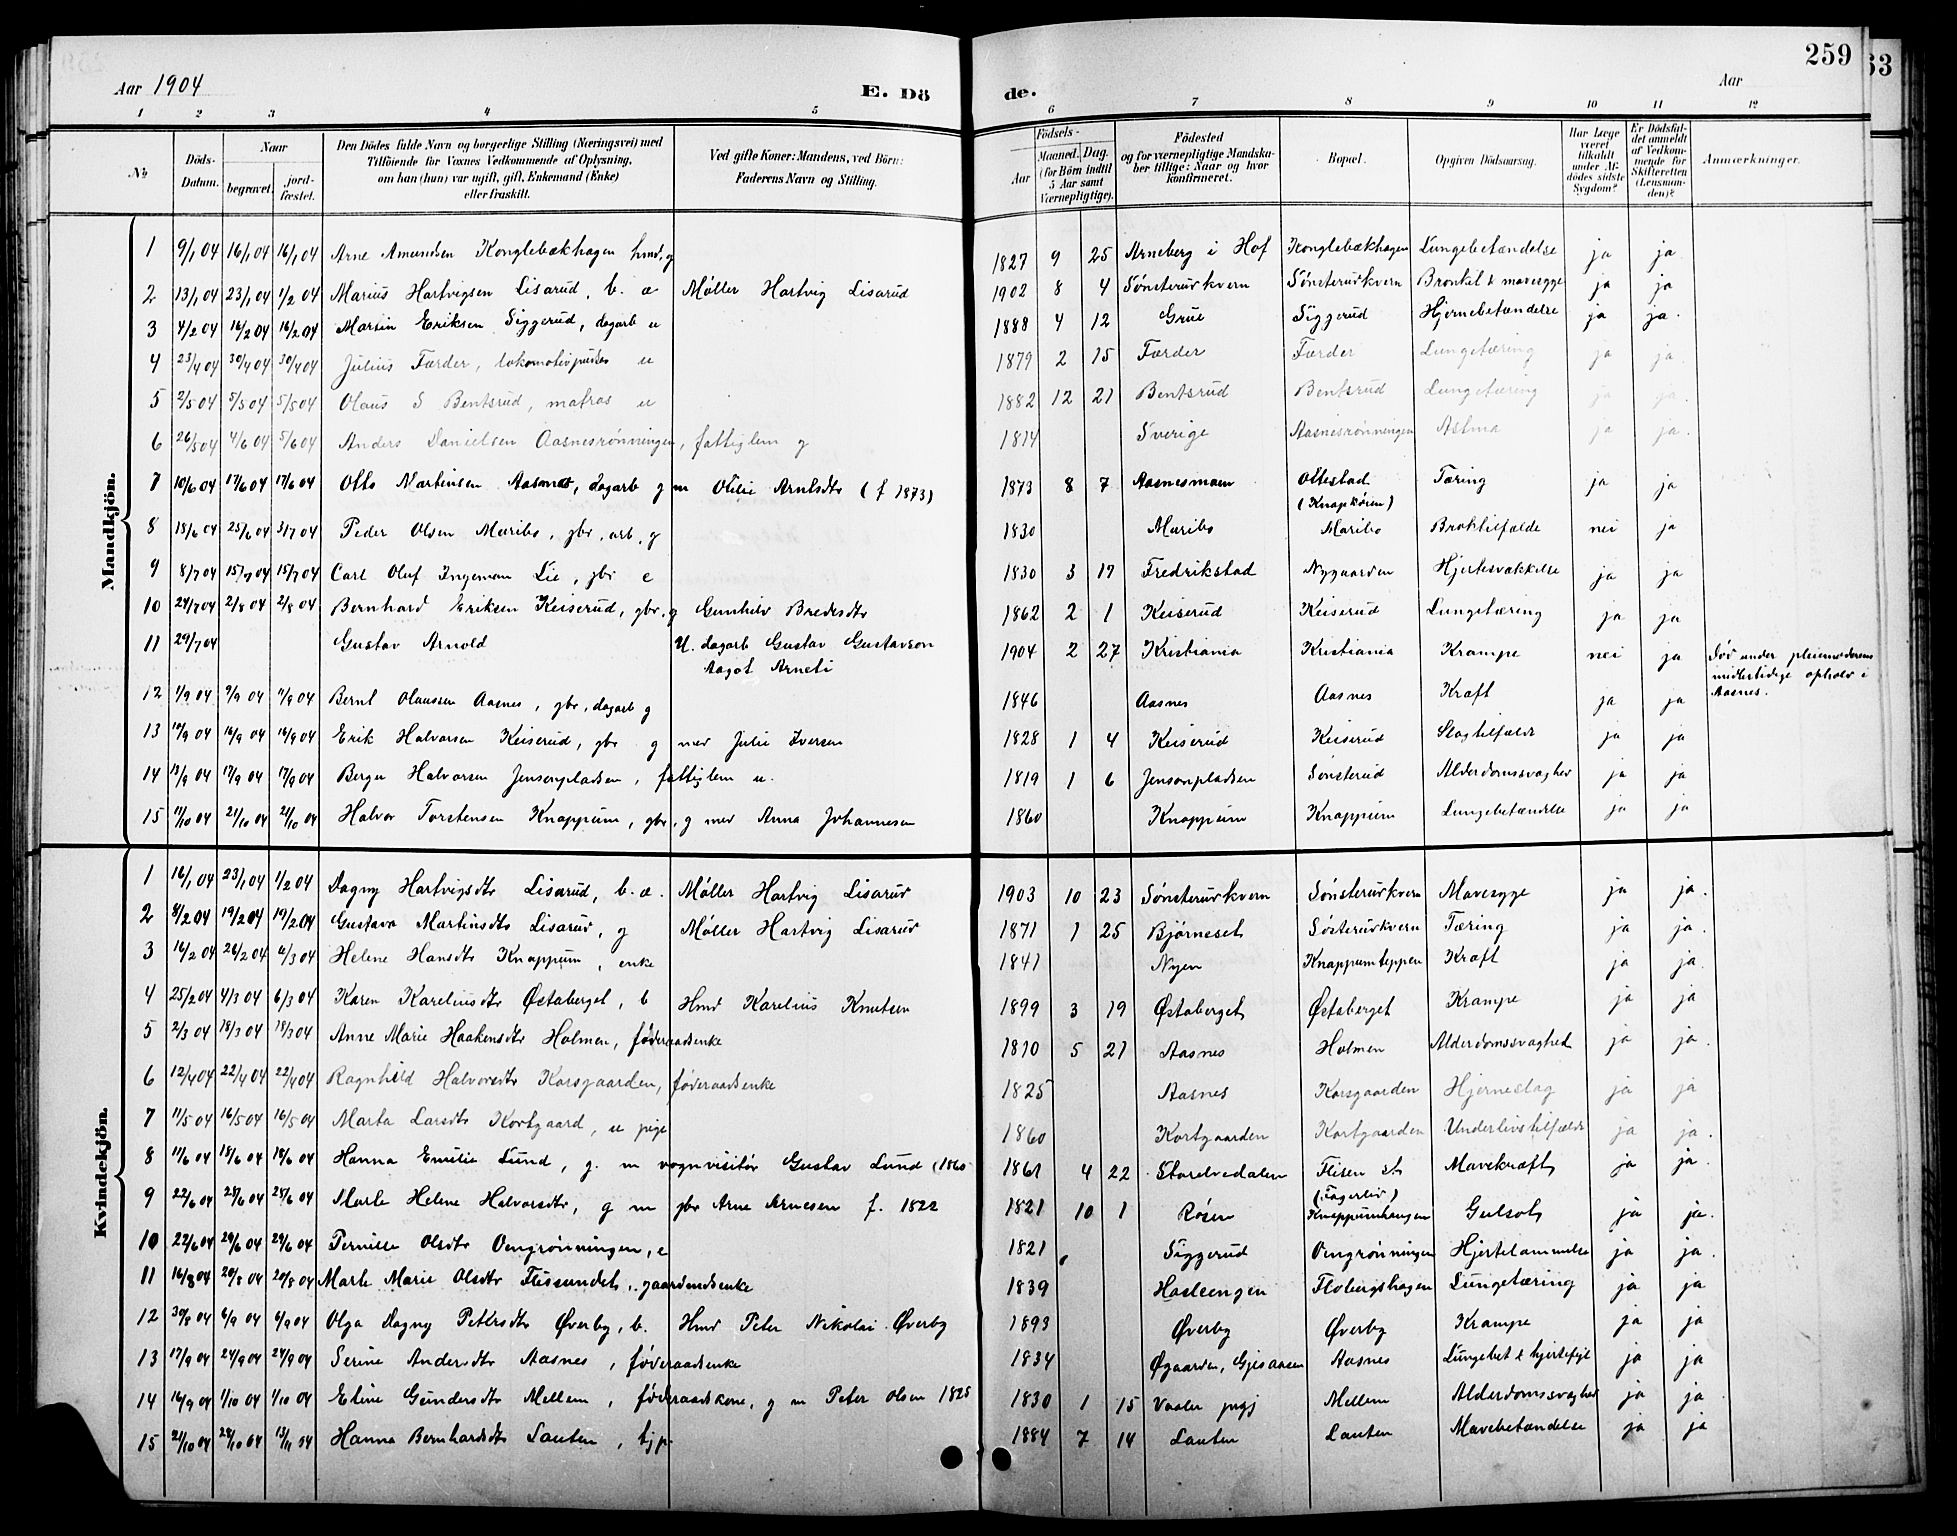 259
63
Aar 1904
E. Dö
de.
Aar
1 2 3 4 5 6 7 8 9 10 11 12
No
Döds-Datum.
Naar
begravet.
jordfæstet.
Den Dödes fulde Navn og borgerlige Stilling (Næringsvei) med
Tilföiende for Voxnes Vedkommende af Oplysning,
om han (hun) var ugift, gift, Enkemand (Enke)
eller fraskilt.
Ved gifte Koner: Mandens, ved Börn:
Faderens Navn og Stilling.
Födsels-
Aar
Maaned. Dag.
(for Börn indtil
5 Aar samt
Værnepligtige).
Födested
og for værnepligtige Mandska-
ber tillige: Naar og hvor
konfirmeret.
Bopæl.
Opgiven Dödsaarsag.
Har Læge
været
tilkaldt
under Af-
dödes sidste
Sygdom?
Er Dödsfal-
det anmeldt
af Vedkom-
mende for
Skifteretten
(Lensman-
den)?
Anmærkninger.
Mandkjön.
1 9/1 04 16/1 04 16/1 04 Arne Amundsen Konglebækhagen hmd, g 1827 9 25 Arneberg i Hof Konglebækhagen Lungebetændelse ja ja
2 13/1 04 23/1 04 1/2 04 Marius Hartvigsen Lisarud, b. æ Møller Hartvig Lisarud 1902 8 4 Sønsterudkvern Sønsterudkvern Bronkit & mavesyge ja ja
3 4/2 04 16/2 04 16/2 04 Martin Eriksen Siggerud, dagarb u 1888 4 12 Grue Siggerud Hjernebetændelse ja ja.
4 23/4 04 30/4 04 30/4 04 Julius Færder, lokomotivpudser u 1879 2 15 Færder Færder Lungetæring ja ja.
5 2/5 04 5/5 04 5/5 04 Olaus S Bentsrud, matros u 1882 12 21 Bentsrud Bentsrud Lungetæring ja ja.
6 26/5 04 4/6 04 5/6 04 Anders Danielsen Aasnesrønningen, fattiglem g 1814 Sverige Aasnesrønningen Astma ja ja.
7 10/6 04 17/6 04 17/6 04 Otto Martinsen Aasnes, dagarb g m Otilie Arntsdtr (f 1873) 1873 8 7 Aasnesmoen Ottestad Tæring ja ja
8 18/6 04 25/6 04 3/7 04 Peder Olsen Maribo, gbr, arb, g 1830 Maribo Maribo Broktilfælde nei ja
9 8/7 04 15/7 04 15/7 04 Carl Oluf Ingeman Lie, gbr e 1830 3 17 Fredrikstad Nygaarden Hjertesvækkelse ja ja
10 24/7 04 2/8 04 2/8 04 Bernhard Eriksen Keiserud, gbr, g Gunhild Bredesdtr 1862 2 1 Keiserud Keiserud Lungetæring ja ja
11 29/7 04 Gustav Arnold U. dagarb Gustav Gustavson 1904 2 27 Kristiania Kristiania Krampe nei ja Død under pleiemoderens
Aagot Arneti midlertidige ophold i
Aasnes.
12 1/9 04 9/9 04 11/9 04 Bernt Olaussen Aasnes, gbr, dagarb g 1846 Aasnes Aasnes Kræft ja ja
13 10/9 04 16/9 04 16/9 04 Erik Halvorsen Keiserud, gbr g med Julie Iversen 1828 1 4 Keiserud Keiserud Slagtilfælde ja ja
14 13/9 04 17/9 04 17/9 04 Berger Halvorsen Jensenpladsen, fattiglem u. 1819 1 6 Jensenpladsen Sønsterud Alderdomssvaghed ja ja
15 11/10 04 21/10 04 21/10 04 Halvor Torstensen Knappum, gbr, g med Anna Johannesen 1860 Knappum Knappum Lungebetændelse ja ja
Kvindekjön.
1 16/1 04 23/1 04 1/2 04 Dagny Hartvigsdtr Lisarud, b. æ. Møller Hartvig Lisarud 1903 10 23 Sønsterudkvern Sønsterudkvern Mavesyge ja ja.
2 8/2 04 19/2 04 19/2 04 Gustava Martinsdtr Lisarud, g Møller Hartvig Lisarud 1871 1 25 Bjørneset Søsterudkvern Tæring ja ja.
3 16/2 04 26/2 04 6/3 04 Helene Hansdtr Knappum, enke 1841 Nyen Knappumteppen Kræft ja ja
4 25/2 04 4/3 04 6/3 04 Karen Kareliusdtr Østaberget, b Hmd Karelius Knutsen 1899 3 19 Østaberget Østaberget Krampe ja ja
5 2/3 04 18/3 04 18/3 04 Anne Marie Haakensdtr Holmen, føderaadsenke 1810 5 21 Aasnes Holmen Alderdomssvaghed ja ja
6 12/4 04 22/4 04 22/4 04 Ragnhild Halvorsdtr Korsgaarden, føderaadsenke 1825 Aasnes Korsgaarden Hjerneslag ja ja
7 11/5 04 16/5 04 16/5 04 Marta Larsdtr Kortgaard, u pige 1860 Kortgaarden Kortgaarden Underlivstilfælde ja ja.
8 11/6 04 18/6 04 18/6 04 Hanna Emilie Lund, g. m vognvisitør Gustav Lund (1860 1861 4 22 Storelvedalen Flisen st Mavekræft ja ja.
9 22/6 04 28/6 04 28/6 04 Marte Helene Halvorsdtr, g m gbr Arne Arnesen f. 1822 1821 10 1 Røsen Knappumhaugen Gulsot ja ja.
10 22/6 04 29/6 04 29/6 04 Pernille Olsdtr Oengrønningen, e 1821 Siggerud Oengrønningen Hjertelammelse ja ja.
11 16/8 04 20/8 04 20/8 04 Marte Marie Olsdtr Flissundet, gaardmdsenke 1839 Hasleengen Flobergshagen Lungetæring ja ja
12 30/8 04 6/9 04 6/9 04 Olga Dagny Petersdtr Øverby, b. Hmd Peter Nikolai Øverby 1893 Øverby Øverby Krampe ja ja
13 17/9 04 24/9 04 24/9 04 Serine Andersdtr Aasnes, føderaadsenke 1834 Øgaarden, Gjesaasen Aasnes Lungebet & hjertefejl ja ja
14 16/9 04 1/10 04 1/10 04 Eline Gundersdtr Mellem, føderaadskone, g m Peter Olsen 1825 1830 1 15 Vaaler prgj Mellem Alderdomssvaghed ja ja
15 21/10 04 28/10 04 13/11 04 Hanna Bernhardsdtr Lauten, tjp 1884 7 14 Lauten Lauten Mavebetændelse ja ja